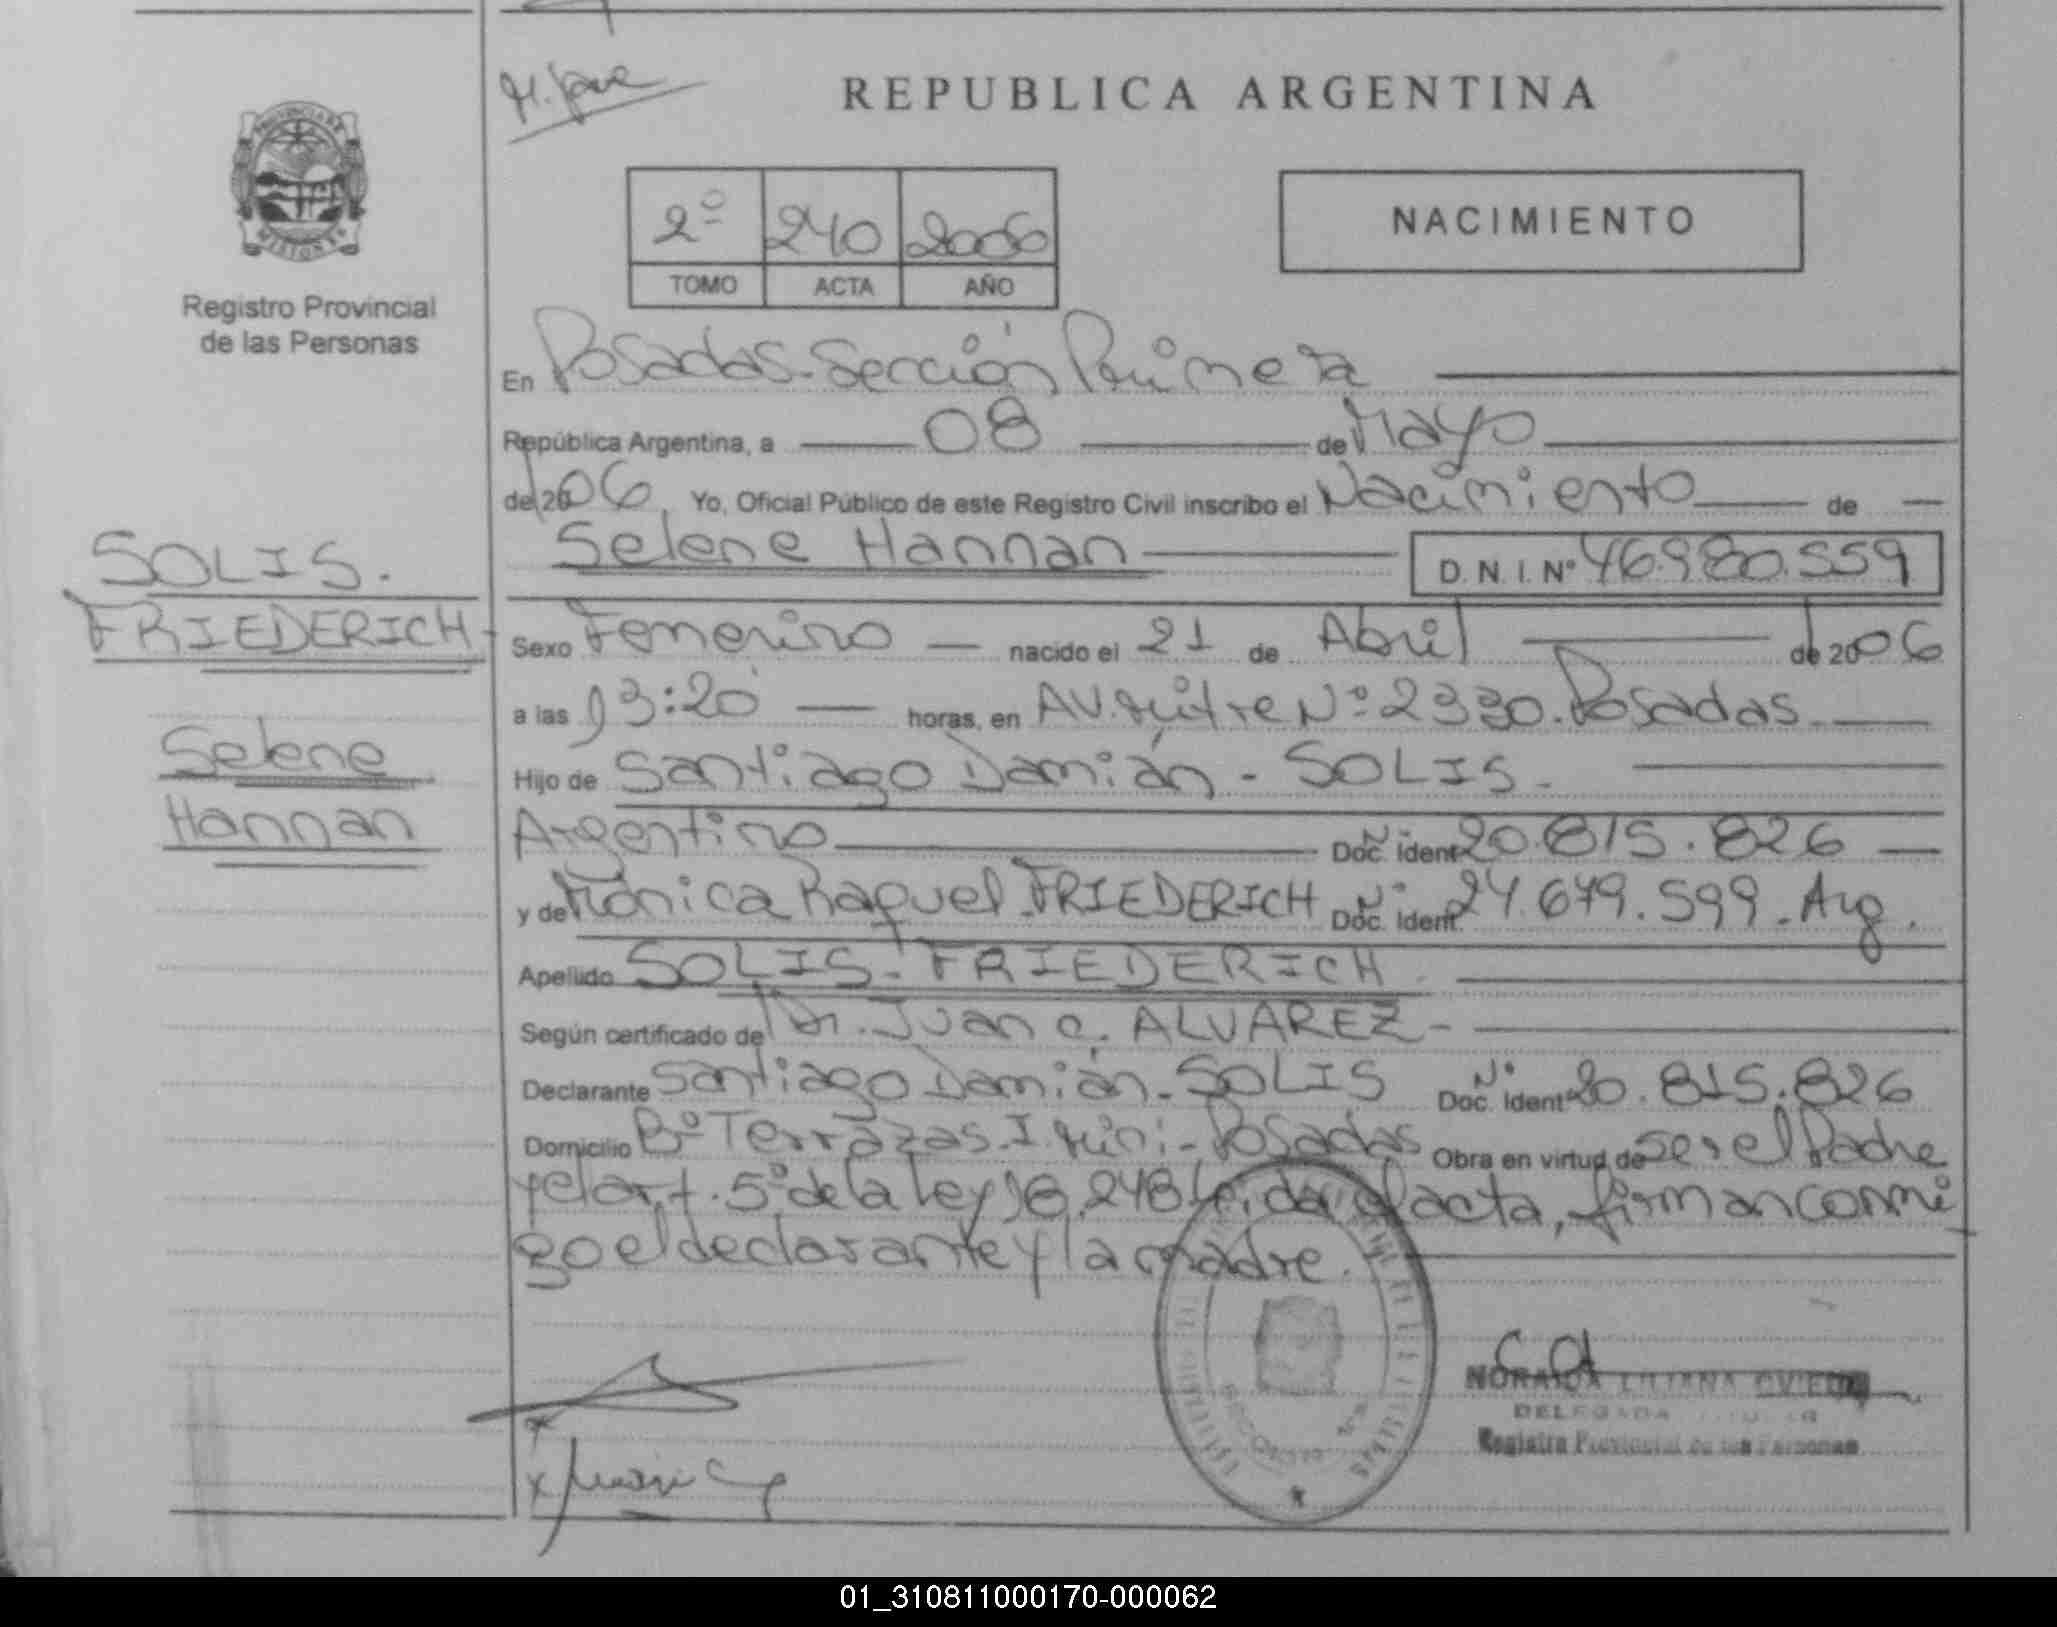 REPUBLICA ARGENTINA
PROVINCIA DE MISIONES
Registro Provincial
de las Personas
2º 240 2006
TOMO ACTA AÑO
NACIMIENTO
En Posadas-Sección Primera
República Argentina, a 08 de Mayo
de 2006 Yo, Oficial Público de este Registro Civil inscribo el Nacimiento de
Selene Hannan D. N. I. Nº 46.980.559
SOLIS.
FRIEDERICH
Selene
Hannan
Sexo Femenino nacido el 21 de Abril de 2006
a las 13:20 horas, en AV. Mitre Nº 2330. Posadas
Hijo de Santiago Damián - SOLIS.
Argentino Doc. Ident Nº 20.815.826
y de Mónica Raquel FRIEDERICH Doc. Ident. Nº 24.679.599 - Arg.
Apellido SOLIS - FRIEDERICH
Según certificado de Dr. Juan C. ALVAREZ -
Declarante Santiago Damián - SOLIS Doc. Ident Nº 20.815.826
Domicilio Bº Terrazas I Miní - Posadas Obra en virtud de ser el Padre
y el art. 5º de la Ley 18.248 Leída el acta, firman conmi
go el declarante y la madre.
LILIANA
DELEGADA
Registro Provincial de las Personas
01_310811000170-000062